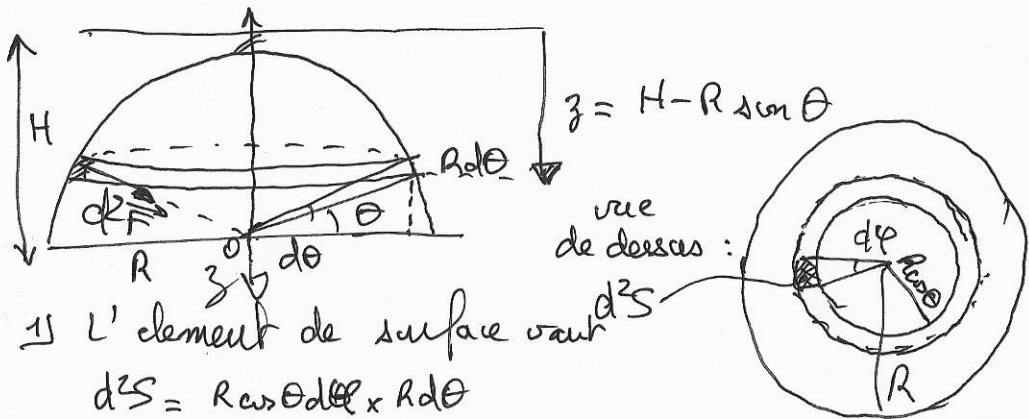 H
z = H - R sin θ
Rdθ
d²F
θ
O
dθ
R
z
vue
de dessus :
d²S
dφ
Rcosθ
R
1) L'element de surface vaut
d²S = R cos θ dφ × R dθ